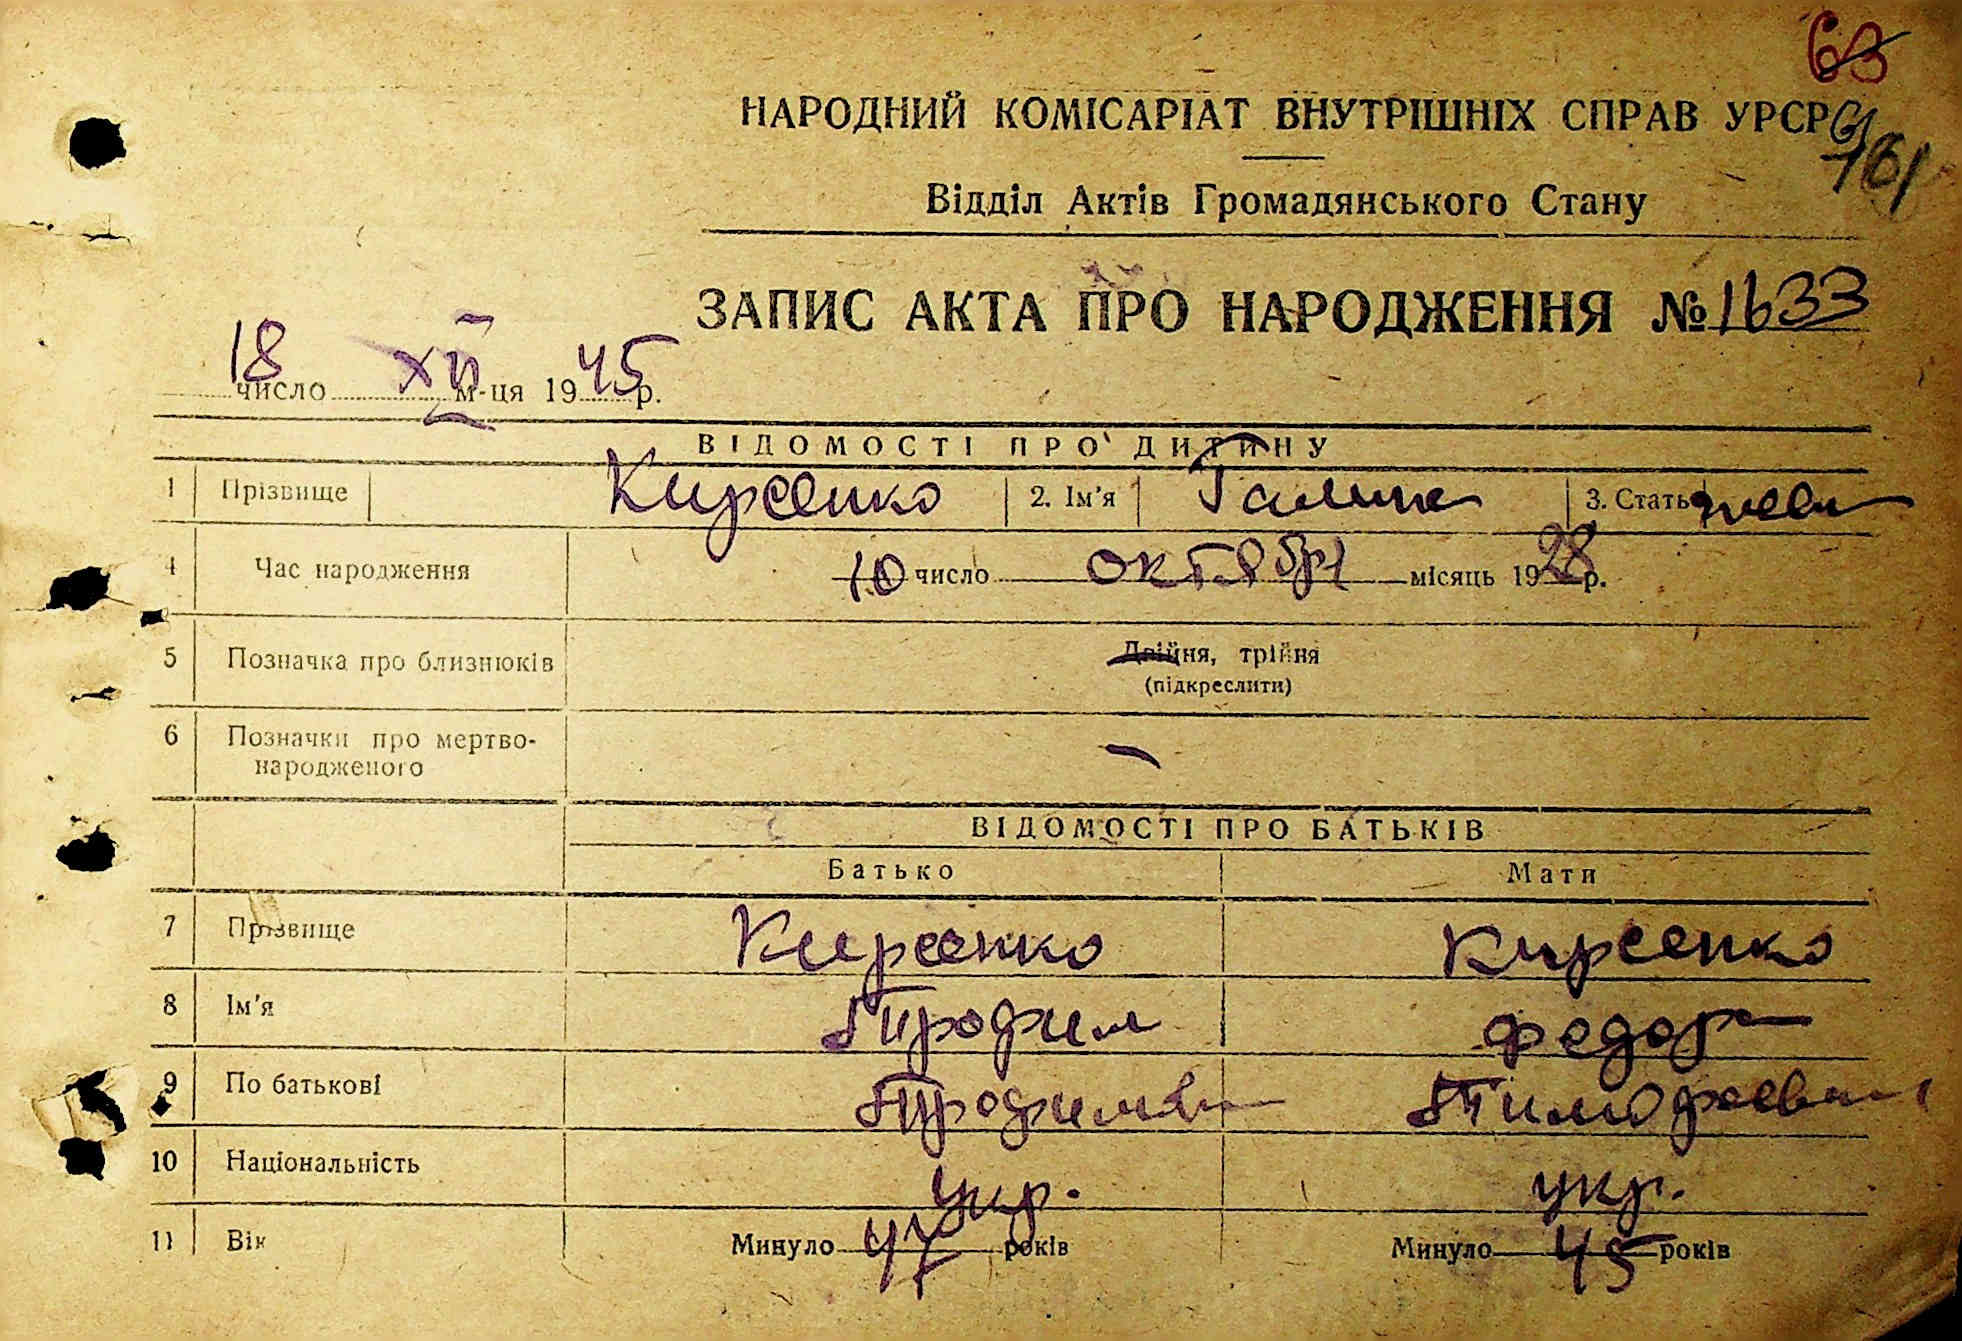 63
НАРОДНИЙ КОМІСАРІАТ ВНУТРІШНІХ СПРАВ УРСР
161
Відділ Актів Громадянського Стану
ЗАПИС АКТА ПРО НАРОДЖЕННЯ № 1633
18 число XII м-ця 1945 р.
ВІДОМОСТІ ПРО ДИТИНУ
1 Прізвище Кирсенко 2. Ім'я Галина 3. Стать
4 Час народження 10 число октября місяць 1928 р.
5 Позначка про близнюків Двійня, трійня
(підкреслити)
6 Позначки про мертво-
народженого
ВІДОМОСТІ ПРО БАТЬКІВ
Батько Мати
7 Прізвище Кирсенко Кирсенко
8 Ім'я Трофим Федора
9 По батькові Тимофеевна
10 Національність укр. укр.
11 Вік Минуло 47 років Минуло 45 років